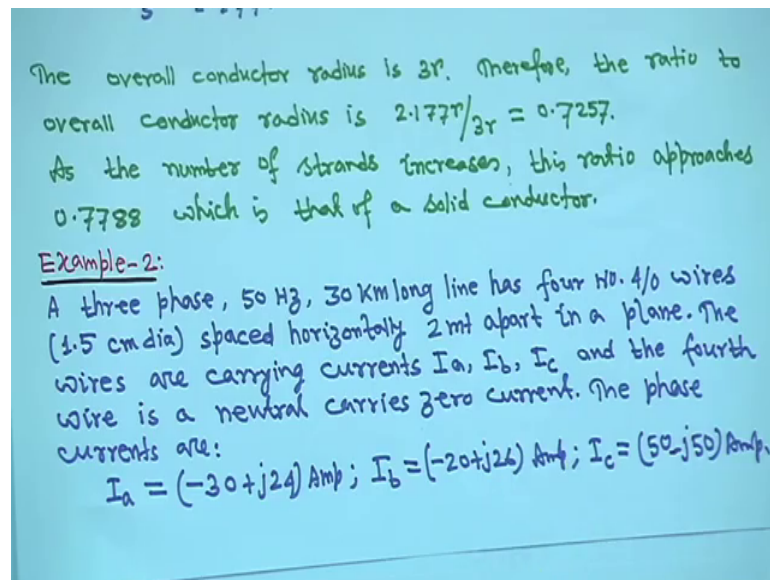 The overall conductor radius is 3r. Therefore, the ratio to
overall conductor radius is 2.177r/3r = 0.7257.
As the number of strands increases, this ratio approaches
0.7788 which is that of a solid conductor.
Example-2:
A three phase, 50 Hz, 30 Km long line has four No. 4/0 wires
(1.5 cm dia) spaced horizontally 2 mt apart in a plane. The
wires are carrying currents Ia, Ib, Ic and the fourth
wire is a neutral carries zero current. The phase
currents are:
Ia = (-30+j24) Amp; Ib = (-20+j26) Amp; Ic = (50-j50) Amp.